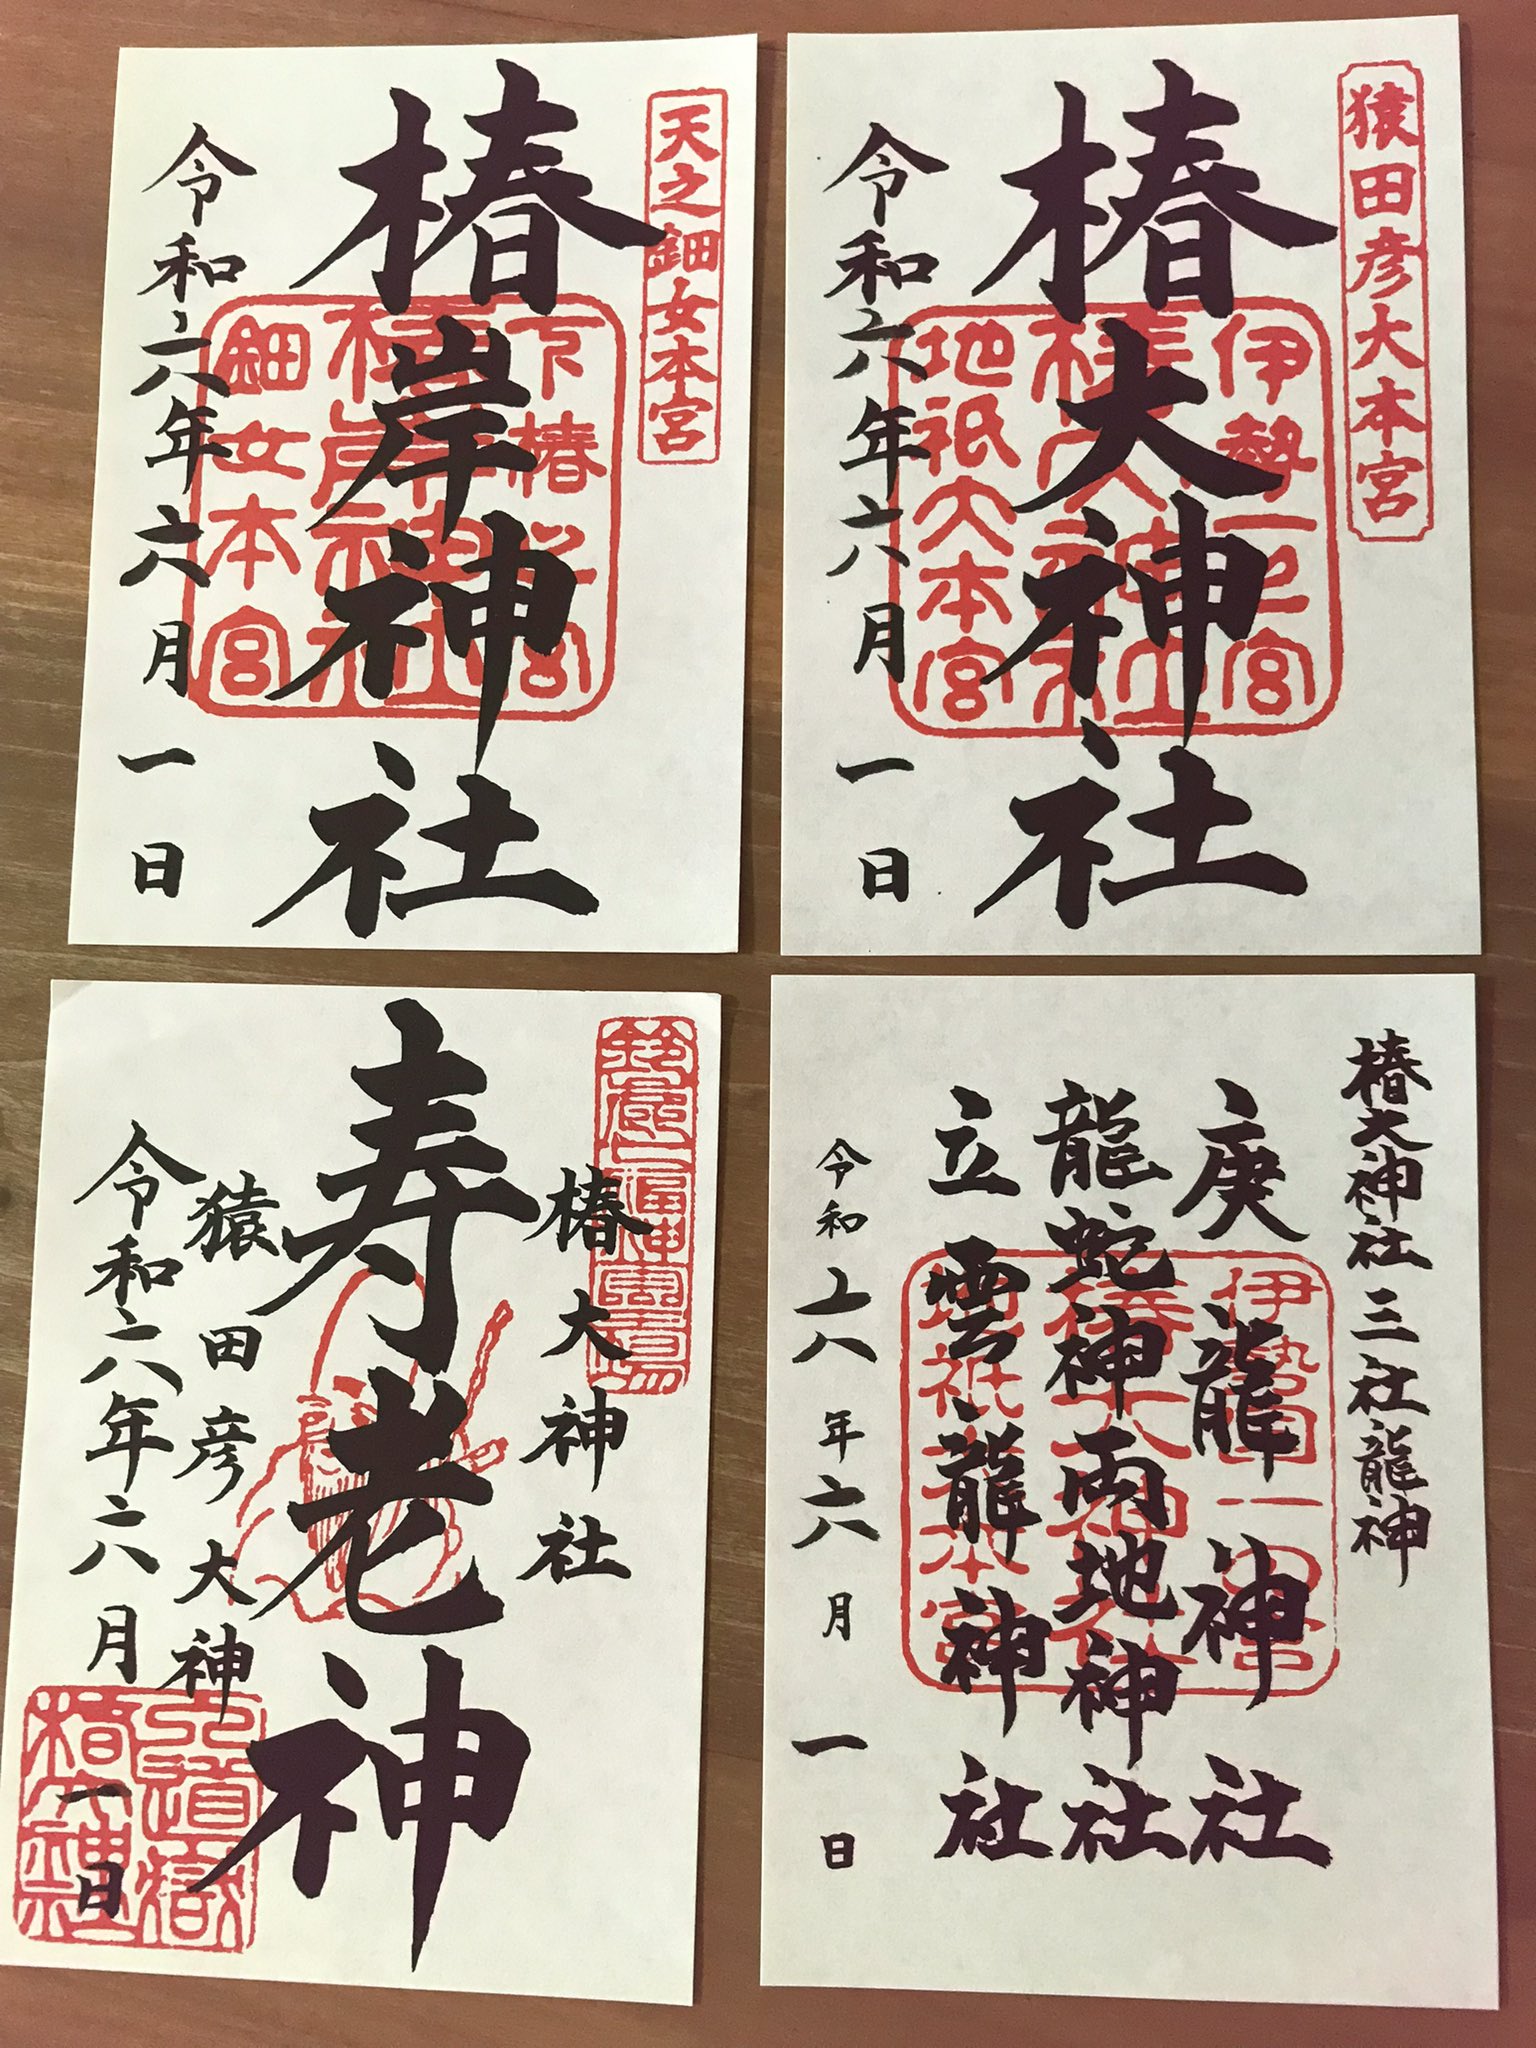 猿田彦大本宮
椿大神社
伊勢一之宮
椿大神社
地祇大本宮
令和六年六月一日
天之鈿女本宮
椿岸神社
下椿之宮
椿岸神社
鈿女本宮
令和六年六月一日
椿大神社三社龍神
庚龍神社
龍蛇神両地神社
立雲龍神社
伊勢国一の宮
椿大神社
地祇大本宮
令和六年六月一日
椿大神社
寿老神
猿田彦大神
令和六年六月一日